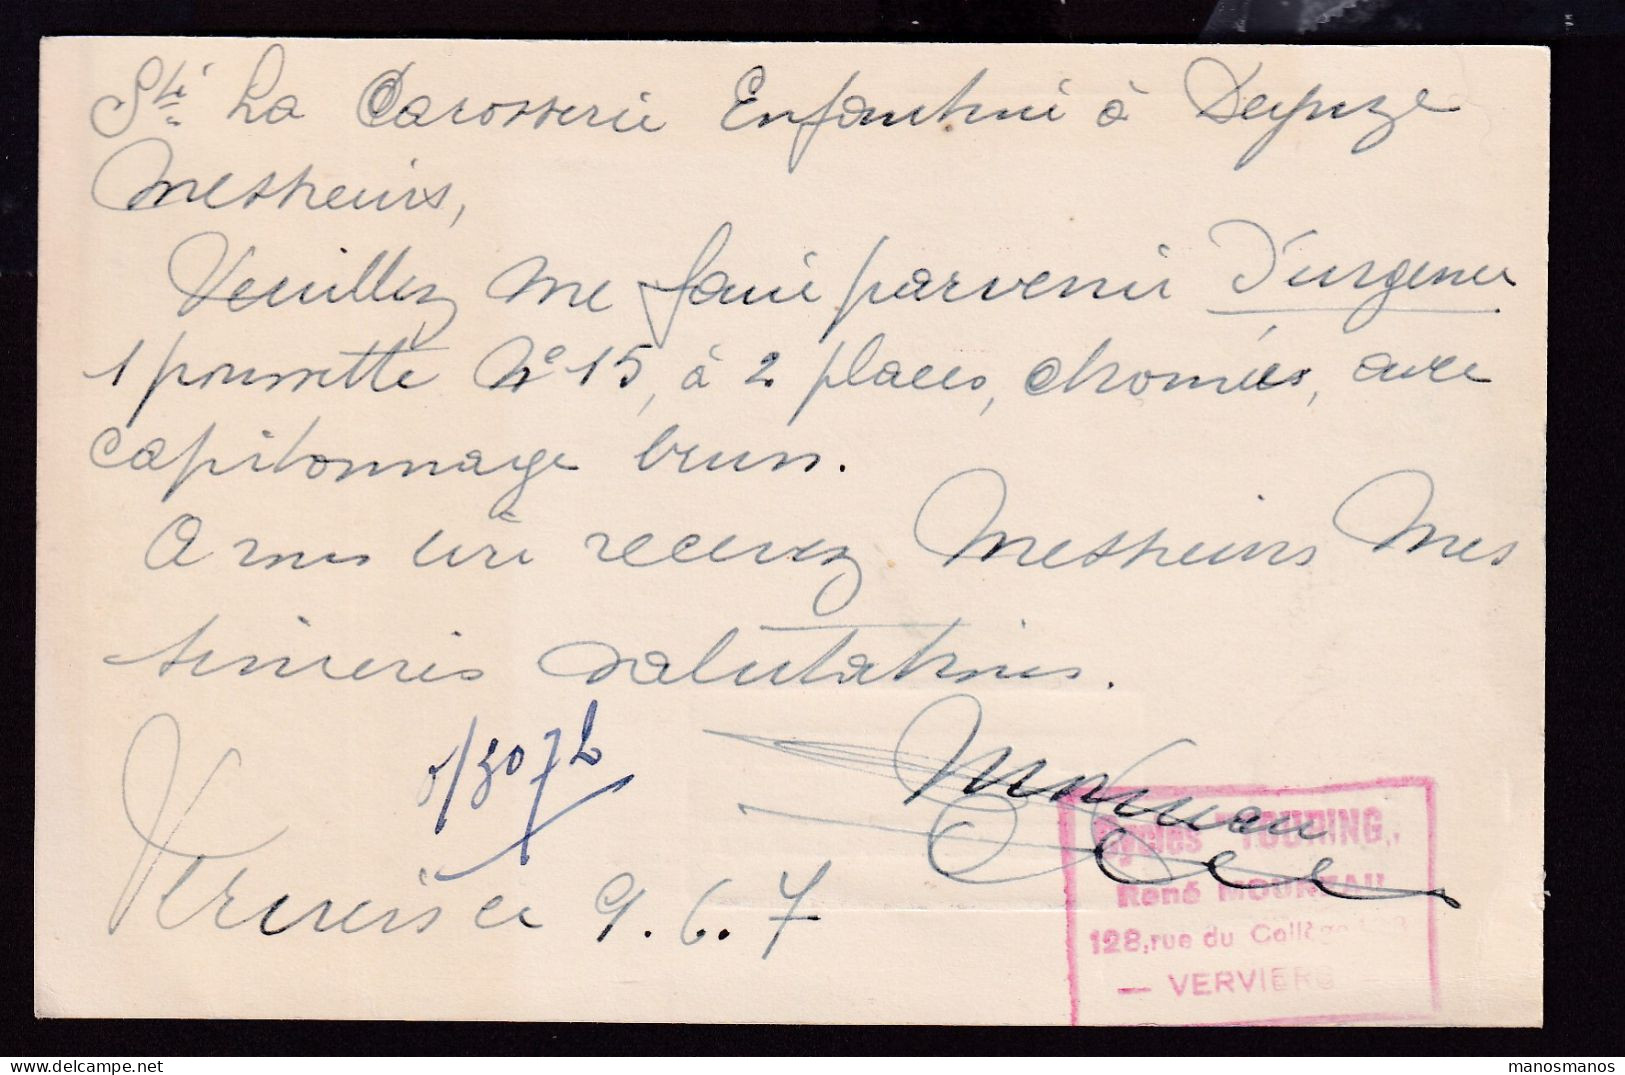 Sté La Carosserie Enfantine à Deynze
Messieurs,
Veuillez me faire parvenir d'urgence
1 poussette N° 15, à 2 places, chomées, avec
capitonnage brun.
A vous lire recevez Messieurs Mes
sincères salutations.
Verviers le 9.6.7
Cycles "TOURING"
René MOUREAU
128, rue du Collège
— VERVIERS
manosmanos